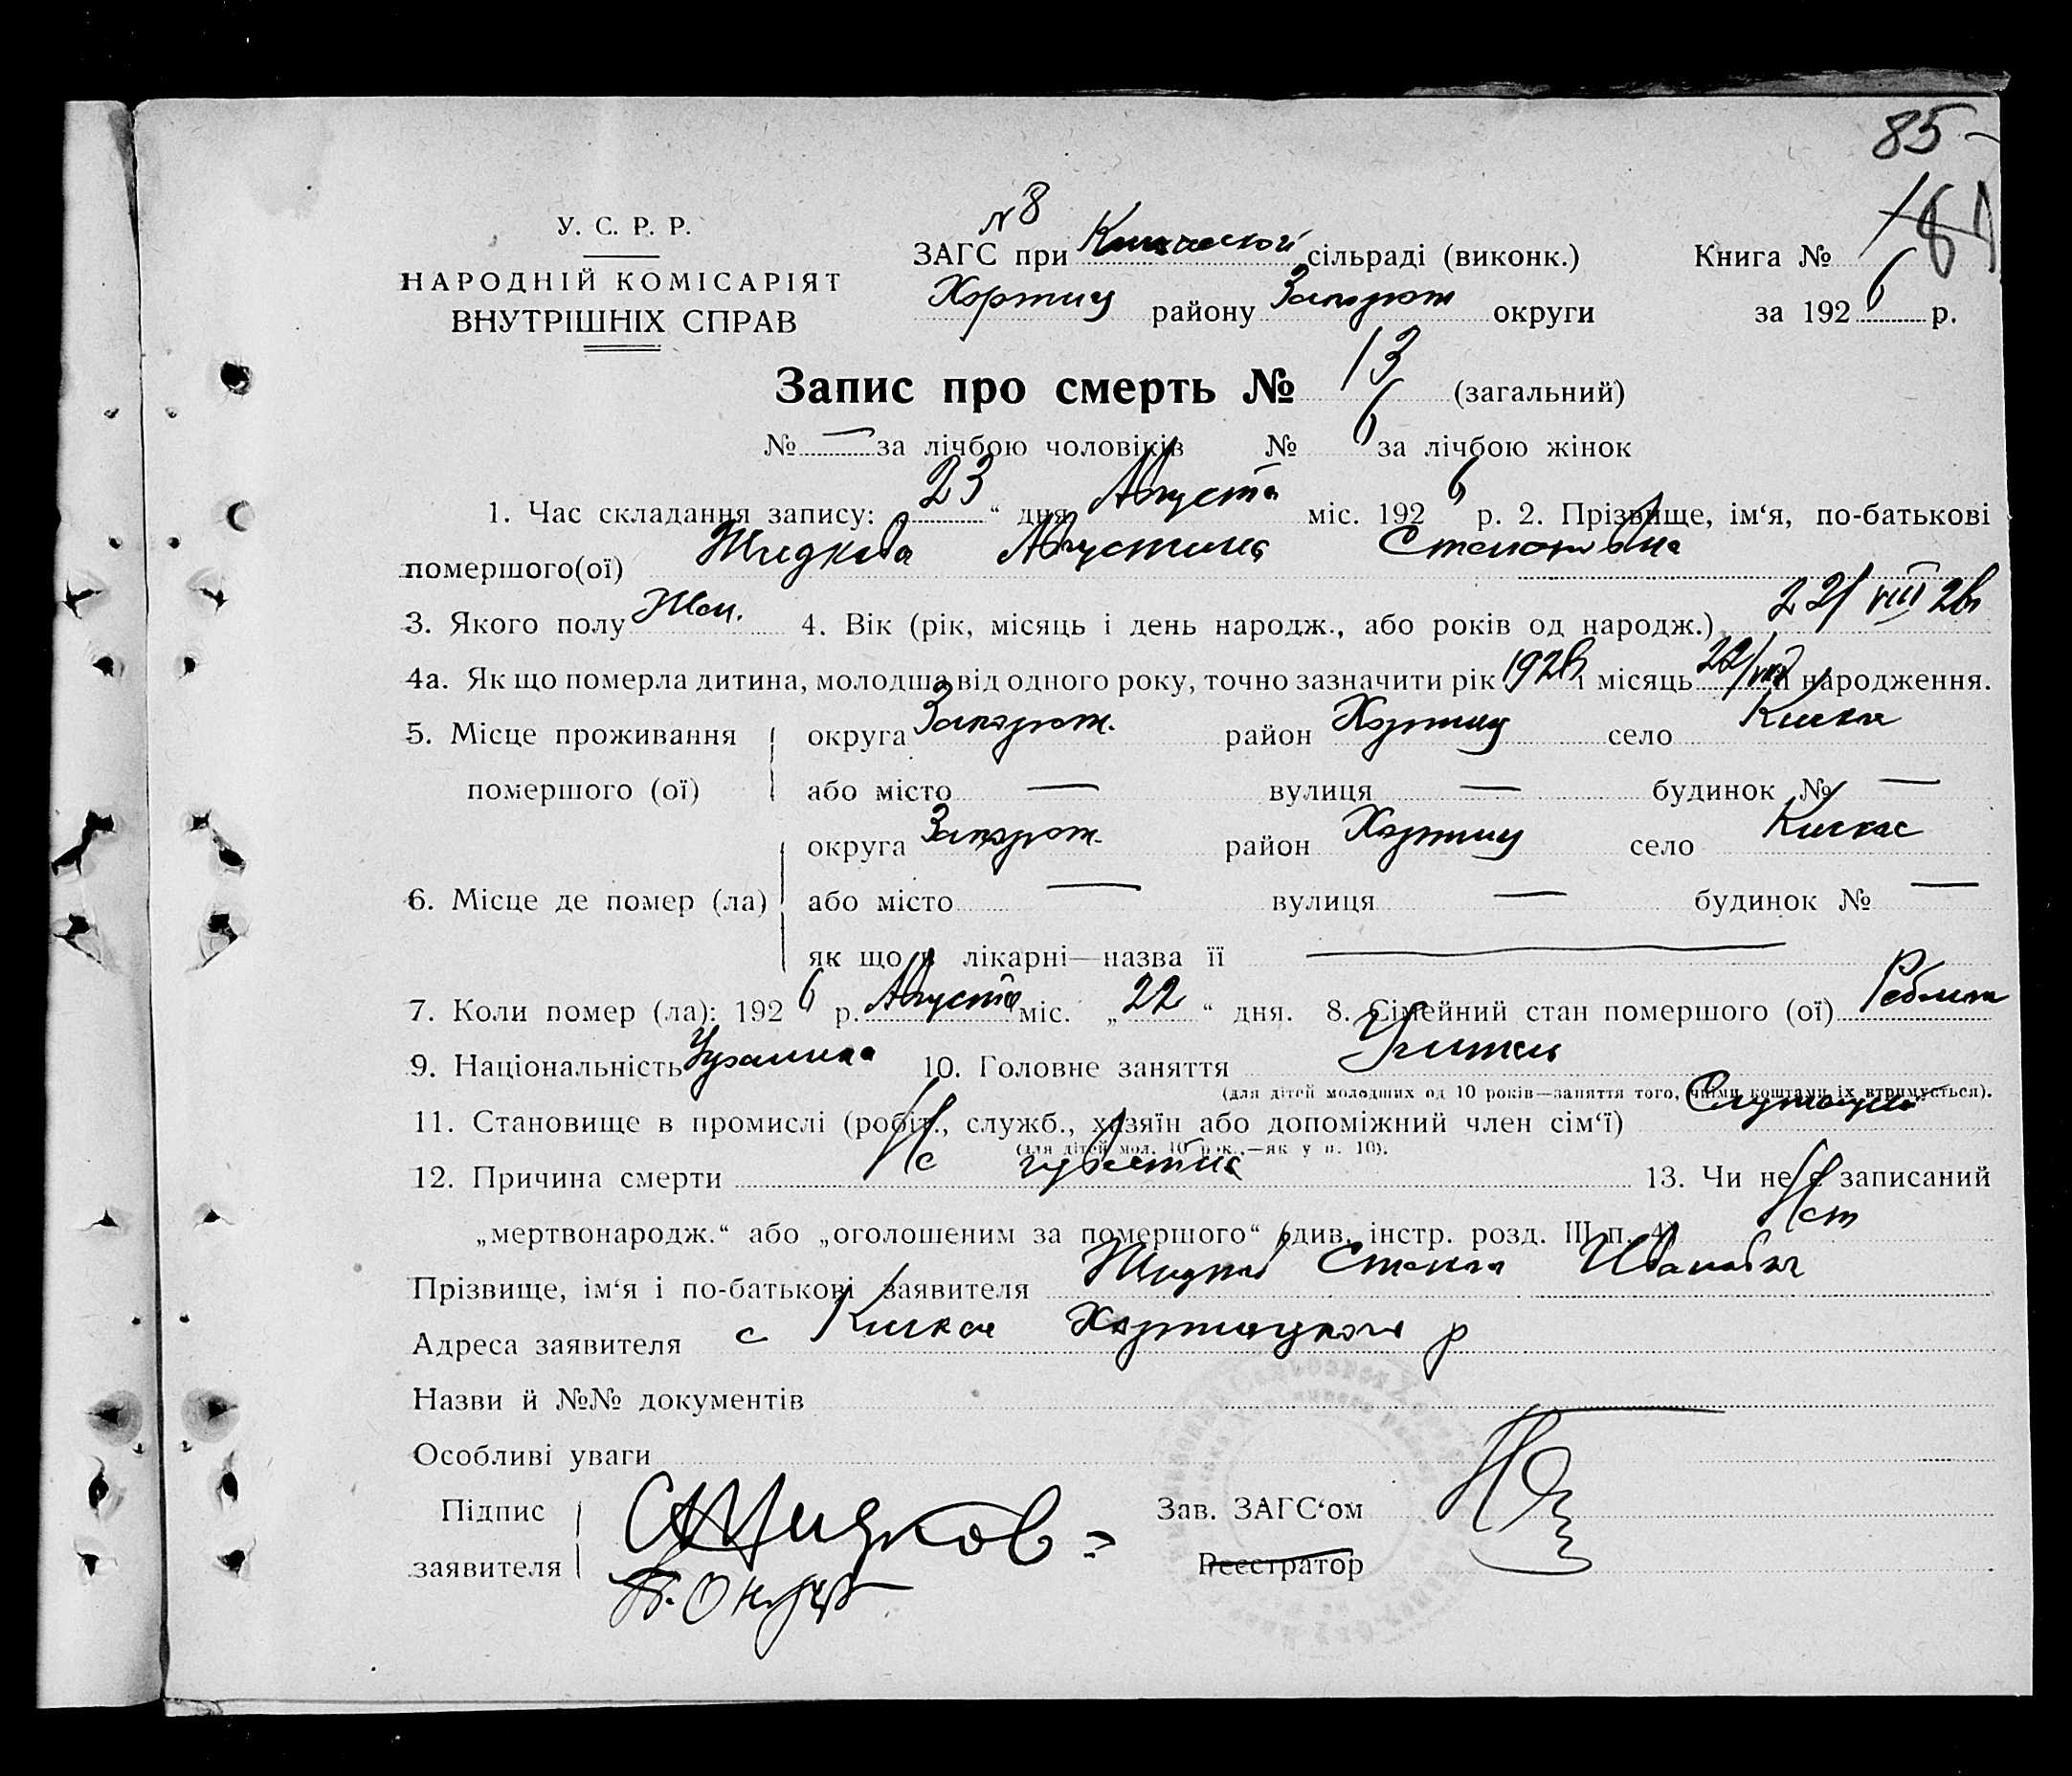 85
У. С. Р. Р.
НАРОДНІЙ КОМІСАРІЯТ
ВНУТРІШНІХ СПРАВ
№ 8
ЗАГС при Кичкаской сільраді (виконк.)
Хортиц району Запорож округи
Книга №
за 1926 р.
Запис про смерть № 13 (загальний)
№ — за лічбою чоловіків № 6 за лічбою жінок
1. Час складання запису: „23“ дня Августа міс. 1926 р. 2. Прізвище, ім‘я, по-батькові
помершого(ої) Жидкова Августина Степановна
3. Якого полу Жен. 4. Вік (рік, місяць і день народж., або років од народж.) 22/VIII 26
4а. Як що померла дитина, молодша від одного року, точно зазначити рік 1926 і місяць 22/VIII її народження.
5. Місце проживання помершого (ої) округа Запорож. район Хортиц село Кичкас
або місто — вулиця — будинок № —
6. Місце де помер (ла) округа Запорож. район Хортиц село Кичкас
або місто — вулиця — будинок № —
як що в лікарні—назва її —
7. Коли помер (ла): 1926 р. Августа міс. „22“ дня. 8. Сімейний стан помершого (ої)
9. Національність 10. Головне заняття Учитель
(для дітей молодших од 10 років—заняття того, чиїми коштами їх втримується).
11. Становище в промислі (робіт., служб., хазяїн або допоміжний член сім‘ї) Служащий
(для дітей мол. 10 рок.,—як у п. 10).
12. Причина смерти Не 13. Чи не є записаний
„мертвонародж.“ або „оголошеним за помершого“ (див. інстр. розд. III п. 4) Нет
Прізвище, ім‘я і по-батькові заявителя Жидков Степан Иванович
Адреса заявителя с Кичкас Хортицкого р
Назви й №№ документів
Особливі уваги
Підпис заявителя Жидков
Зав. ЗАГС‘ом
Реєстратор